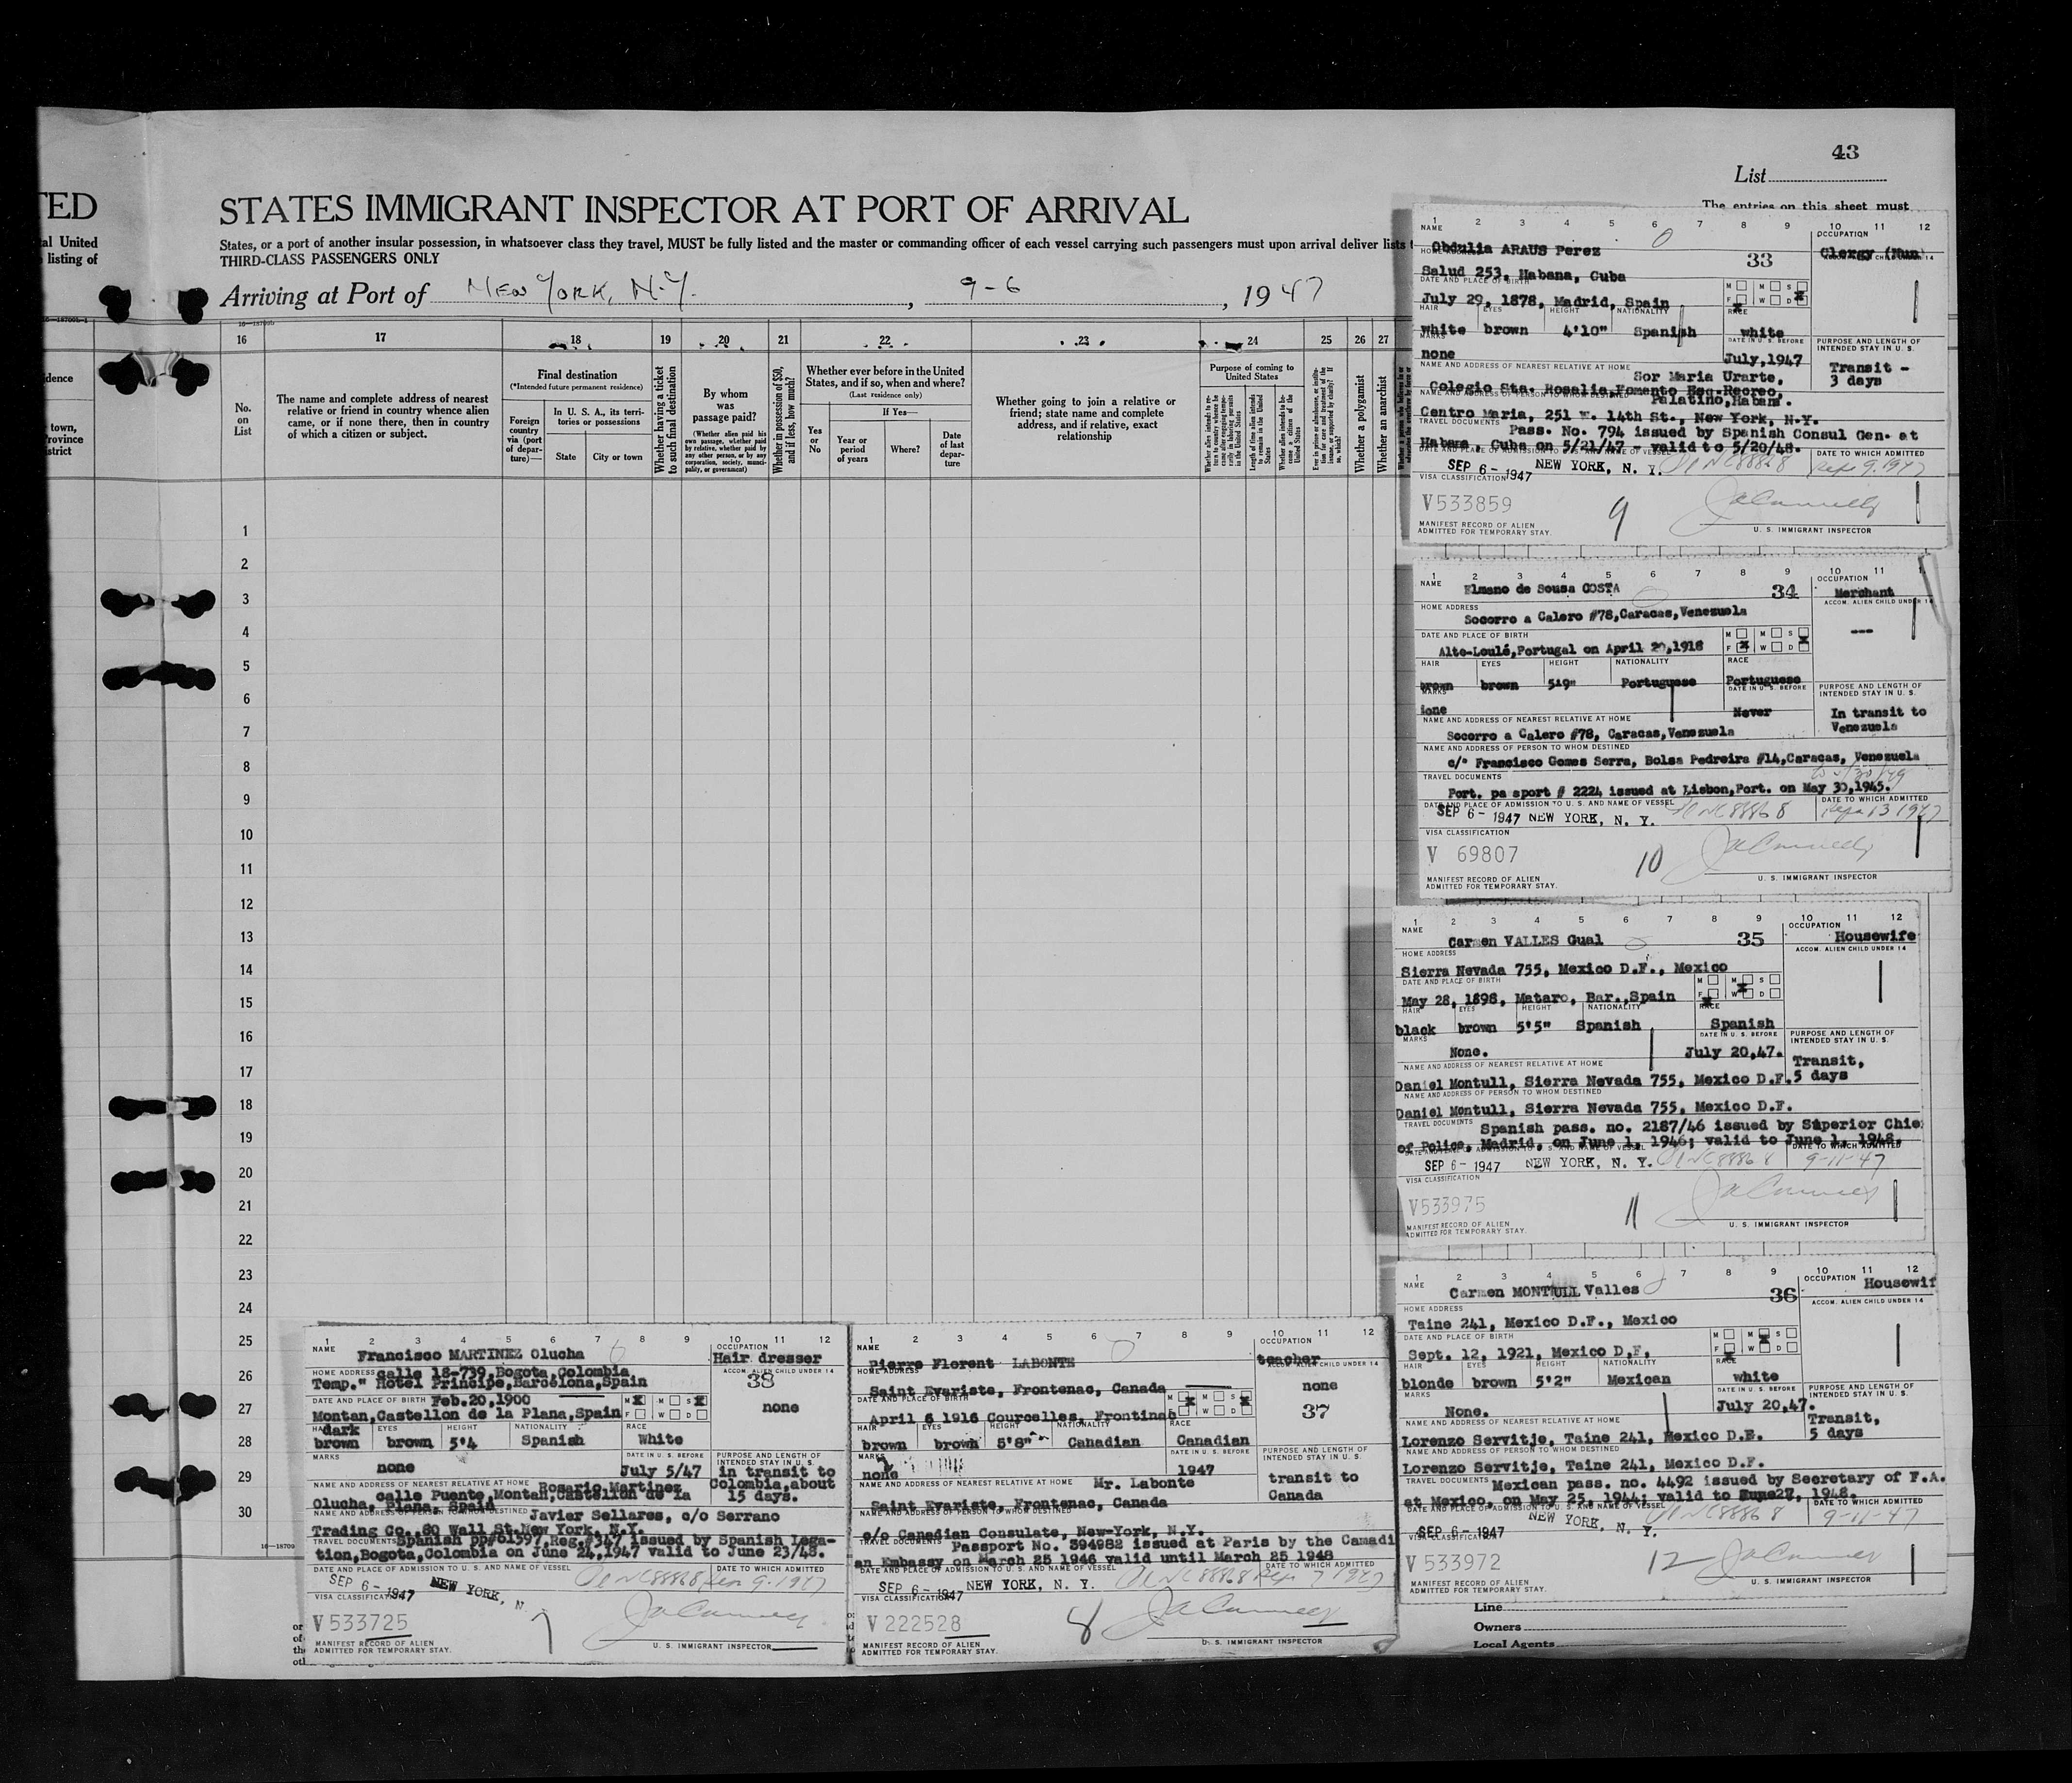 43
List
TED
STATES IMMIGRANT INSPECTOR AT PORT OF ARRIVAL
The entries on this sheet must
al United
listing of
States, or a port of another insular possession, in whatsoever class they travel, MUST be fully listed and the master or commanding officer of each vessel carrying such passengers must upon arrival deliver lists
THIRD-CLASS PASSENGERS ONLY
Arriving at Port of New York, N.Y., 9-6, 1947
16 17 18 19 20 21 22 23 24 25 26 27
dence
town,
Province
strict
No. on List
The name and complete address of nearest relative or friend in country whence alien came, or if none there, then in country of which a citizen or subject.
Final destination
(*Intended future permanent residence)
Foreign country via (port of departure)—
In U. S. A., its territories or possessions
State
City or town
Whether having a ticket to such final destination
By whom was passage paid?
(Whether alien paid his own passage, whether paid by relative, whether paid by any other person, or by any corporation, society, municipality, or government)
Whether in possession of $50, and if less, how much?
Whether ever before in the United States, and if so, when and where?
(Last residence only)
Yes or No
If Yes—
Year or period of years
Where?
Date of last departure
Whether going to join a relative or friend; state name and complete address, and if relative, exact relationship
Purpose of coming to United States
Length of time alien intends to remain in the United States
Whether a polygamist
Whether an anarchist
1
2
3
4
5
6
7
8
9
10
11
12
13
14
15
16
17
18
19
20
21
22
23
24
25
26
27
28
29
30
1 2 3 4 5 6 7 8 9 10 11 12
NAME
Obdulia ARAUS Perez
33
OCCUPATION
Clergy (Nun)
Salud 253, Habana, Cuba
DATE AND PLACE OF BIRTH
July 29, 1878, Madrid, Spain
HAIR EYES HEIGHT NATIONALITY RACE
white brown 4'10" Spanish white
MARKS
none
DATE IN U. S. BEFORE
July,1947
PURPOSE AND LENGTH OF INTENDED STAY IN U. S.
Transit - 3 days
NAME AND ADDRESS OF NEAREST RELATIVE AT HOME
Sor Maria Urarte,
Colegio Sta. Rosalia,Fomento Rec.Recreo,
Palatino,Habana.
Centro Maria, 251 W. 14th St., New York, N.Y.
TRAVEL DOCUMENTS
Pass. No. 794 issued by Spanish Consul Gen. at
Habana, Cuba on 5/21/47 - valid to 5/20/48.
SEP 6 - 1947 NEW YORK, N. Y.
DATE TO WHICH ADMITTED
Sept 9.1947
VISA CLASSIFICATION
V533859
9
MANIFEST RECORD OF ALIEN
ADMITTED FOR TEMPORARY STAY.
U. S. IMMIGRANT INSPECTOR
1 2 3 4 5 6 7 8 9 10 11
NAME
Elmano de Sousa COSTA
34
OCCUPATION
Merchant
ACCOM. ALIEN CHILD UNDER 14
---
HOME ADDRESS
Socorro a Calero #78,Caracas,Venezuela
DATE AND PLACE OF BIRTH
Alte-Loulé,Portugal on April 20,1918
HAIR EYES HEIGHT NATIONALITY RACE
brown brown 5'9" Portuguese Portuguese
MARKS
DATE IN U. S. BEFORE
Never
PURPOSE AND LENGTH OF INTENDED STAY IN U. S.
In transit to Venezuela
NAME AND ADDRESS OF NEAREST RELATIVE AT HOME
Socorro a Calero #78, Caracas,Venezuela
NAME AND ADDRESS OF PERSON TO WHOM DESTINED
c/º Francisco Gomes Serra, Bolsa Pedreira #14,Caracas, Venezuela
TRAVEL DOCUMENTS
Port. pa sport # 2224 issued at Lisbon,Port. on May 30,1945.
DATE AND PLACE OF ADMISSION TO U. S. AND NAME OF VESSEL
SEP 6 - 1947 NEW YORK, N. Y.
DATE TO WHICH ADMITTED
Sept 13 1947
VISA CLASSIFICATION
V 69807
10
MANIFEST RECORD OF ALIEN
ADMITTED FOR TEMPORARY STAY.
U. S. IMMIGRANT INSPECTOR
1 2 3 4 5 6 7 8 9 10 11 12
NAME
Carmen VALLES Gual
35
OCCUPATION
Housewife
ACCOM. ALIEN CHILD UNDER 14
HOME ADDRESS
Sierra Nevada 755, Mexico D.F., Mexico
DATE AND PLACE OF BIRTH
May 28, 1898, Mataro, Bar.,Spain
HAIR EYES HEIGHT NATIONALITY RACE
black brown 5'5" Spanish Spanish
MARKS
None.
DATE IN U. S. BEFORE
July 20,47.
PURPOSE AND LENGTH OF INTENDED STAY IN U. S.
Transit, 5 days
NAME AND ADDRESS OF NEAREST RELATIVE AT HOME
Daniel Montull, Sierra Nevada 755, Mexico D.F.
NAME AND ADDRESS OF PERSON TO WHOM DESTINED
Daniel Montull, Sierra Nevada 755, Mexico D.F.
TRAVEL DOCUMENTS
Spanish pass. no. 2187/46 issued by Superior Chie
of Police, Madrid, on June 1, 1946; valid to June 1, 1948.
SEP 6 - 1947 NEW YORK, N. Y.
DATE TO WHICH ADMITTED
9-11-47
VISA CLASSIFICATION
V533975
11
MANIFEST RECORD OF ALIEN
ADMITTED FOR TEMPORARY STAY.
U. S. IMMIGRANT INSPECTOR
1 2 3 4 5 6 7 8 9 10 11 12
NAME
Carmen MONTULL Valles
36
OCCUPATION
Housewif
ACCOM. ALIEN CHILD UNDER 14
HOME ADDRESS
Taine 241, Mexico D.F., Mexico
DATE AND PLACE OF BIRTH
Sept. 12, 1921, Mexico D.F.
HAIR EYES HEIGHT NATIONALITY RACE
blonde brown 5'2" Mexican white
MARKS
None.
DATE IN U. S. BEFORE
July 20,47.
PURPOSE AND LENGTH OF INTENDED STAY IN U. S.
Transit, 5 days
NAME AND ADDRESS OF NEAREST RELATIVE AT HOME
Lorenzo Servitje, Taine 241, Mexico D.F.
NAME AND ADDRESS OF PERSON TO WHOM DESTINED
Lorenzo Servitje, Taine 241, Mexico D.F.
TRAVEL DOCUMENTS
Mexican pass. no. 4492 issued by Secretary of F.A.
at Mexico, on May 25, 1944; valid to June27, 1948.
SEP 6 - 1947 NEW YORK, N. Y.
DATE TO WHICH ADMITTED
9-11-47
VISA CLASSIFICATION
V 533972
12
MANIFEST RECORD OF ALIEN
ADMITTED FOR TEMPORARY STAY.
U. S. IMMIGRANT INSPECTOR
1 2 3 4 5 6 7 8 9 10 11 12
NAME
Francisco MARTINEZ Olucha
OCCUPATION
Hair dresser
ACCOM. ALIEN CHILD UNDER 14
38
none
HOME ADDRESS
calle 18-739,Bogota,Colombia
Temp." Hotel Principe,Barcelona,Spain
DATE AND PLACE OF BIRTH
Feb.20,1900
Montan,Castellon de la Plana,Spain
HAIR EYES HEIGHT NATIONALITY RACE
dark brown brown 5'4 Spanish White
MARKS
none
DATE IN U. S. BEFORE
July 5/47
PURPOSE AND LENGTH OF INTENDED STAY IN U. S.
in transit to Colombia,about 15 days.
NAME AND ADDRESS OF NEAREST RELATIVE AT HOME
Rosario Martinez
calle Puente,Montan,Castellon de la
Olucha, Plana, Spain
Javier Sellares, c/o Serrano
Trading Co.,60 Wall St.New York, N.Y.
TRAVEL DOCUMENTS
Spanish pp#61597,Reg.#347 issued by Spanish Lega-
tion,Bogota,Colombia on June 24,1947 valid to June 23/48.
DATE AND PLACE OF ADMISSION TO U. S. AND NAME OF VESSEL
SEP 6 - 1947 NEW YORK, N.
DATE TO WHICH ADMITTED
Sep 9-1947
VISA CLASSIFICATION
V533725
7
MANIFEST RECORD OF ALIEN
ADMITTED FOR TEMPORARY STAY.
U. S. IMMIGRANT INSPECTOR
1 2 3 4 5 6 7 8 9 10 11 12
NAME
Pierre Florent LABONTE
OCCUPATION
teacher
none
37
HOME ADDRESS
Saint Evariste, Frontenac, Canada
DATE AND PLACE OF BIRTH
April 6 1916 Courcelles, Frontinac
HAIR EYES HEIGHT NATIONALITY RACE
brown brown 5'8" Canadian Canadian
MARKS
none
DATE IN U. S. BEFORE
1947
PURPOSE AND LENGTH OF INTENDED STAY IN U. S.
transit to Canada
NAME AND ADDRESS OF NEAREST RELATIVE AT HOME
Mr. Labonte
Saint Evariste, Frontenac, Canada
NAME AND ADDRESS OF PERSON TO WHOM DESTINED
c/o Canadian Consulate, New-York, N.Y.
TRAVEL DOCUMENTS
Passport No. 394982 issued at Paris by the Canadi
an Embassy on March 25 1946 valid until March 25 1948
DATE AND PLACE OF ADMISSION TO U. S. AND NAME OF VESSEL
SEP 6 - 1947 NEW YORK, N. Y.
DATE TO WHICH ADMITTED
Sept 7 1947
VISA CLASSIFICATION
V 222528
8
MANIFEST RECORD OF ALIEN
ADMITTED FOR TEMPORARY STAY.
U. S. IMMIGRANT INSPECTOR
Line
Owners
Local Agents